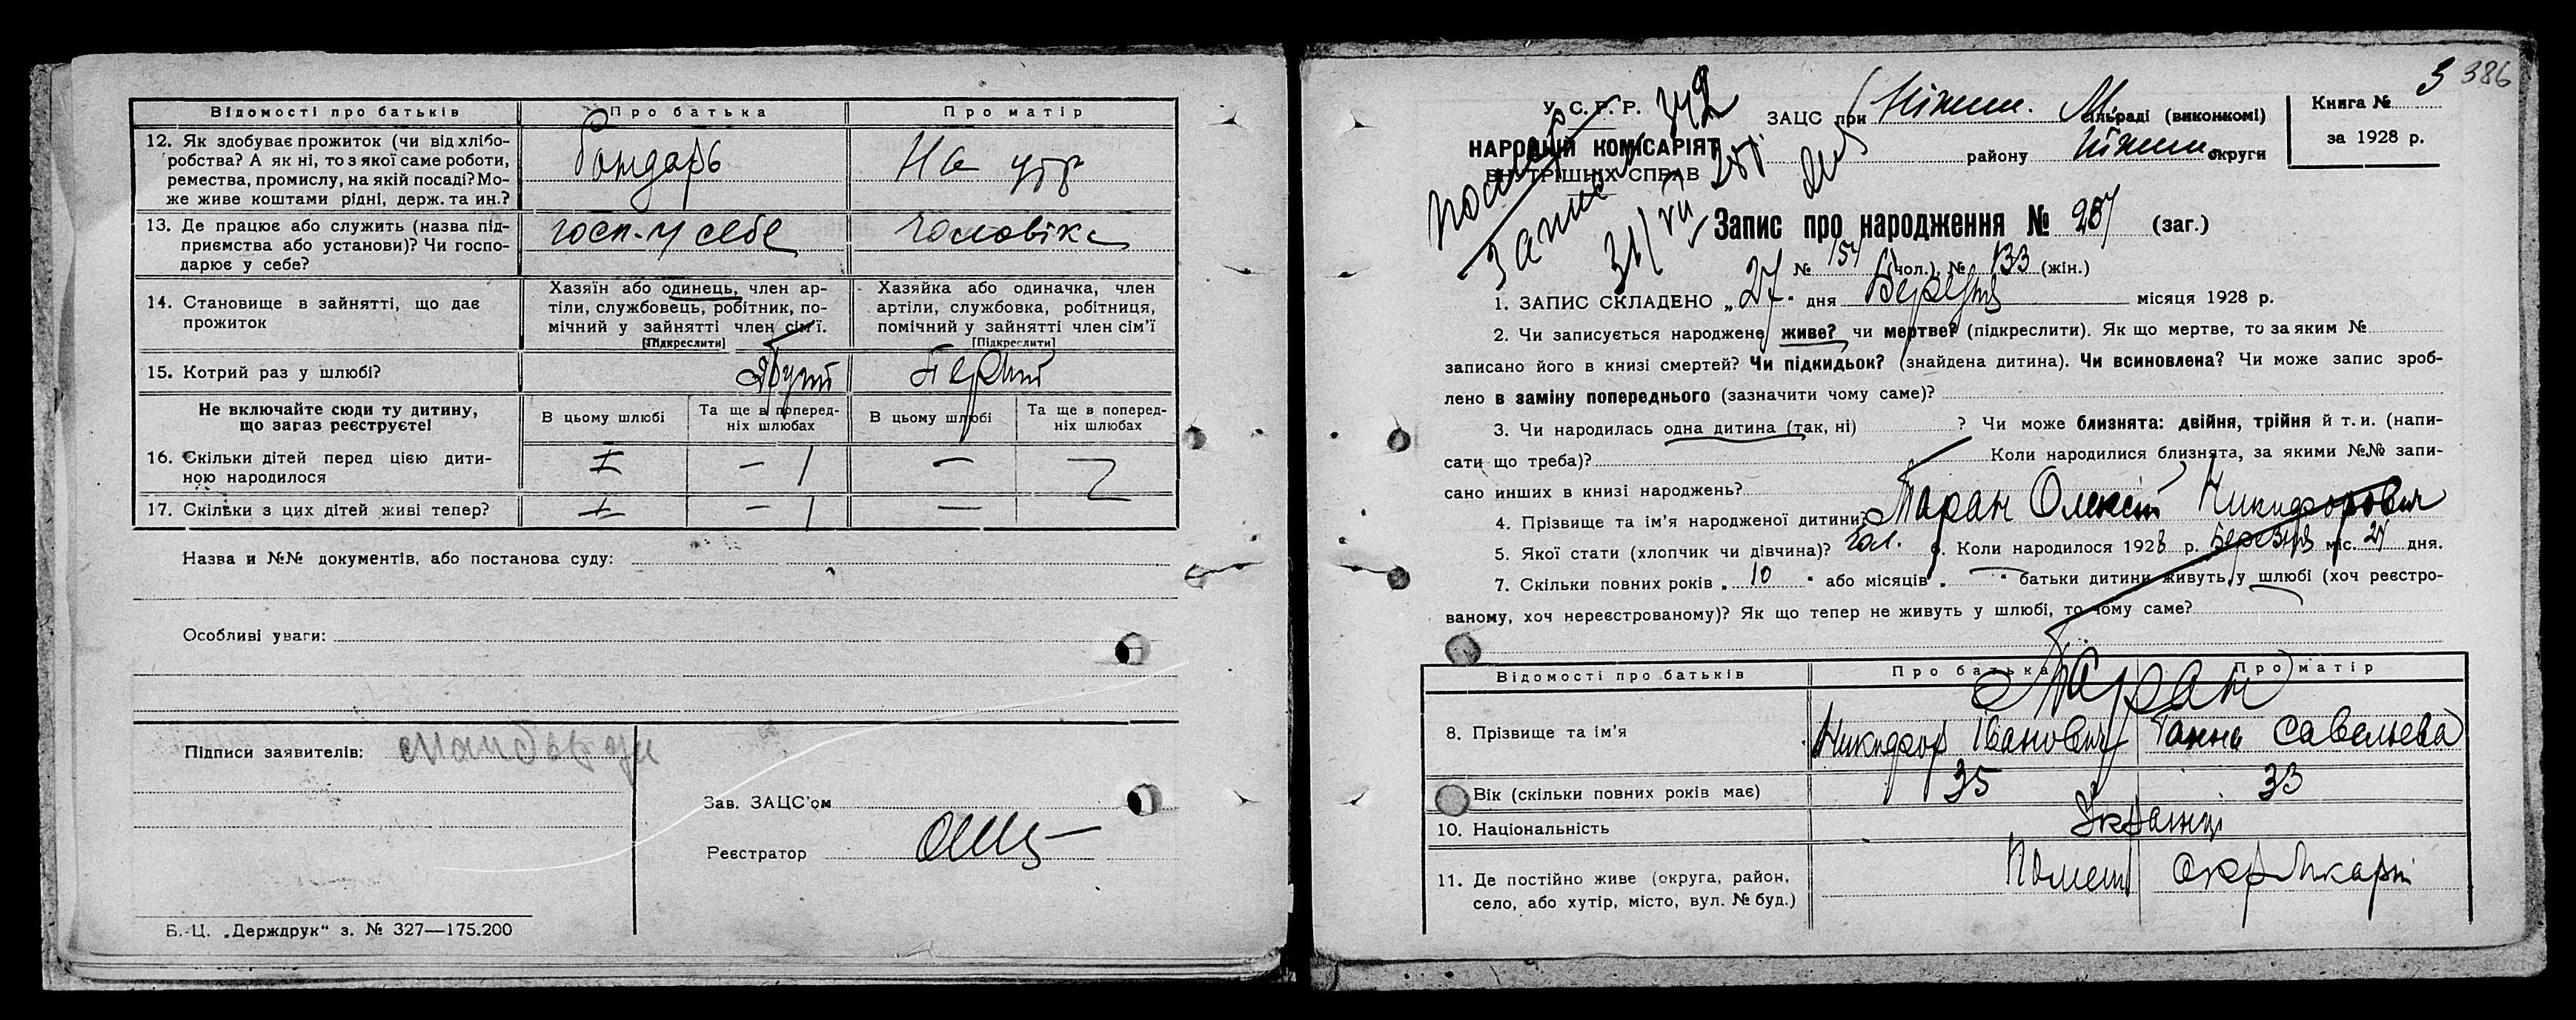 Відомості про батьків Про батька Про матір
12. Як здобуває прожиток (чи від хлібо-
робства? А як ні, то з якої саме роботи,
ремества, промислу, на якій посаді? Мо-
же живе коштами рідні, держ. та ин.?
Бондарь На утр
13. Де працює або служить (назва під-
приємства або установи)? Чи госпо-
дарює у себе?
госп. у себе чоловіка
14. Становище в зайнятті, що дає
прожиток
Хазяїн або одинець, член ар-
тіли, службовець, робітник, по-
мічний у зайнятті член сім'ї.
[Підкреслити]
Хазяйка або одиначка, член
артіли, службовка, робітниця,
помічний у зайнятті член сім'ї
[Підкреслити]
15. Котрий раз у шлюбі? Другий Перший
Не включайте сюди ту дитину,
що загаз реєструєте!
В цьому шлюбі Та ще в поперед-
ніх шлюбах В цьому шлюбі Та ще в поперед-
ніх шлюбах
16. Скільки дітей перед цією дити-
ною народилося
17. Скільки з цих дітей живі тепер?
Назва и №№ документів, або постанова суду:
Особливі уваги:
Підписи заявителів:
Зав. ЗАЦС'ом
Реєстратор
Б.-Ц. „Держдрук“ з. № 327—175.200
386
У. С. Р. Р. 342
НАРОДНІЙ КОМІСАРІЯТ
ВНУТРІШНІХ СПРАВ
ЗАЦС при Ніжин. Міськраді (виконкомі)
району Ніжин. округи
Книга № 3
за 1928 р.
Запис про народження № 287 (заг.)
№ 154 (чол.), № 133 (жін.)
1. ЗАПИС СКЛАДЕНО „27“ дня Березня місяця 1928 р.
2. Чи записується народжене живе? чи мертве? (підкреслити). Як що мертве, то за яким №
записано його в книзі смертей? Чи підкидьок? (знайдена дитина). Чи всиновлена? Чи може запис зроб-
лено в заміну попереднього (зазначити чому саме)?
3. Чи народилась одна дитина (так, ні) ? Чи може близнята: двійня, трійня й т. и. (напи-
сати що треба)? Коли народилися близнята, за якими №№ запи-
сано инших в книзі народжень?
4. Прізвище та ім'я народженої дитини: Таран Олексій Никифорович
5. Якої стати (хлопчик чи дівчина)? чол. 6. Коли народилося 1928 р. Березня міс. 24 дня.
7. Скільки повних років „ 10 “ або місяців „ “ батьки дитини живуть у шлюбі (хоч реєстро-
ваному, хоч нереєстрованому)? Як що тепер не живуть у шлюбі, то чому саме?
Відомості про батьків Про батька Про матір
Таран
8. Прізвище та ім'я Никифор Іванович Ганна Савельева
Вік (скільки повних років має) 35 33
10. Національність Українці
11. Де постійно живе (округа, район,
село, або хутір, місто, вул. № буд.)